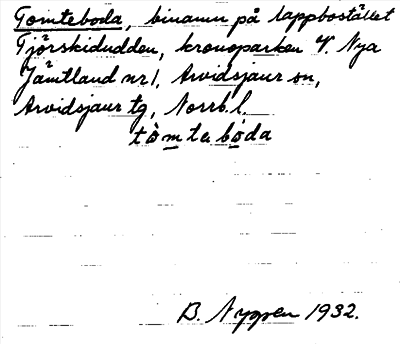 Tomteboda, binamn på lappbostället
Fjärskidudden, kronoparken V. Nya
Jämtland nr 1, Arvidsjaur sn,
Arvidsjaur tg, Norrb. l.
tòmtebòda
B. Nygren 1932.